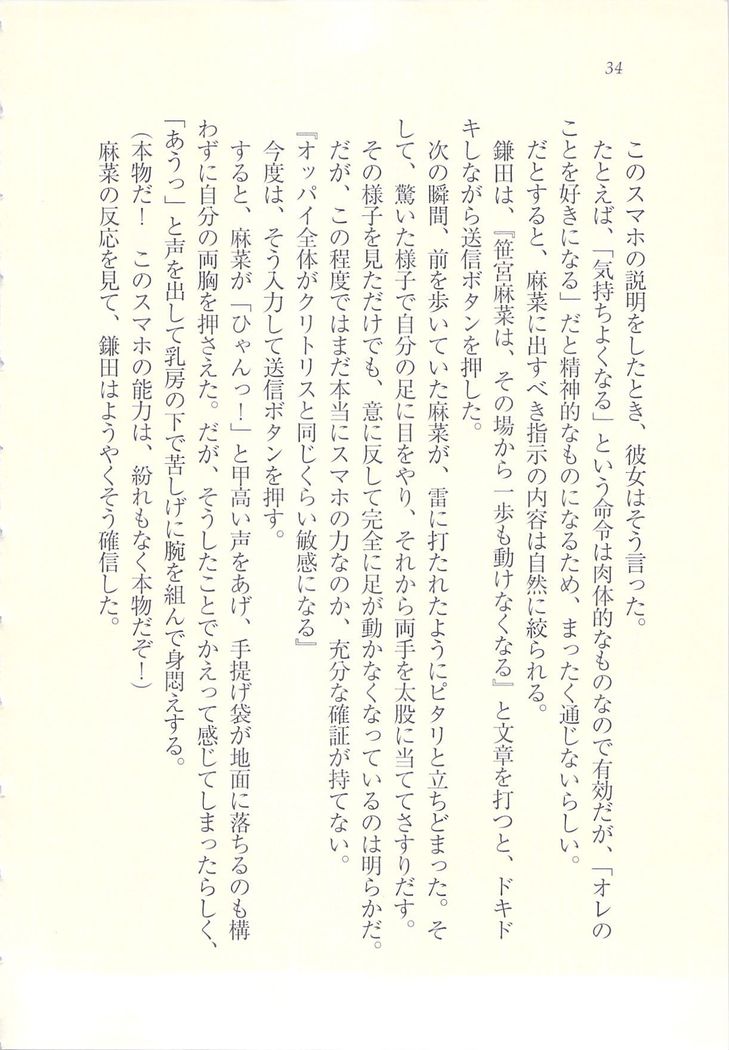 34
このスマホの説明をしたとき、彼女はそう言った。
たとえば、「気持ちよくなる」という命令は肉体的なものなので有効だが、「オレの
ことを好きになる」だと精神的なものになるため、まったく通じないらしい。
だとすると、麻菜に出すべき指示の内容は自然に絞られる。
鎌田は、『笹宮麻菜は、その場から一歩も動けなくなる』と文章を打つと、ドキド
キしながら送信ボタンを押した。
次の瞬間、前を歩いていた麻菜が、雷に打たれたようにピタリと立ちどまった。そ
して、驚いた様子で自分の足に目をやり、それから両手を太股に当ててさすりだす。
その様子を見ただけでも、意に反して完全に足が動かなくなっているのは明らかだ。
だが、この程度ではまだ本当にスマホの力なのか、充分な確証が持てない。
『オッパイ全体がクリトリスと同じくらい敏感になる』
今度は、そう入力して送信ボタンを押す。
すると、麻菜が「ひゃんっ！」と甲高い声をあげ、手提げ袋が地面に落ちるのも構
わずに自分の両胸を押さえた。だが、そうしたことでかえって感じてしまったらしく、
「あうっ」と声を出して乳房の下で苦しげに腕を組んで身悶えする。
（本物だ！　このスマホの能力は、紛れもなく本物だぞ！）
麻菜の反応を見て、鎌田はようやくそう確信した。